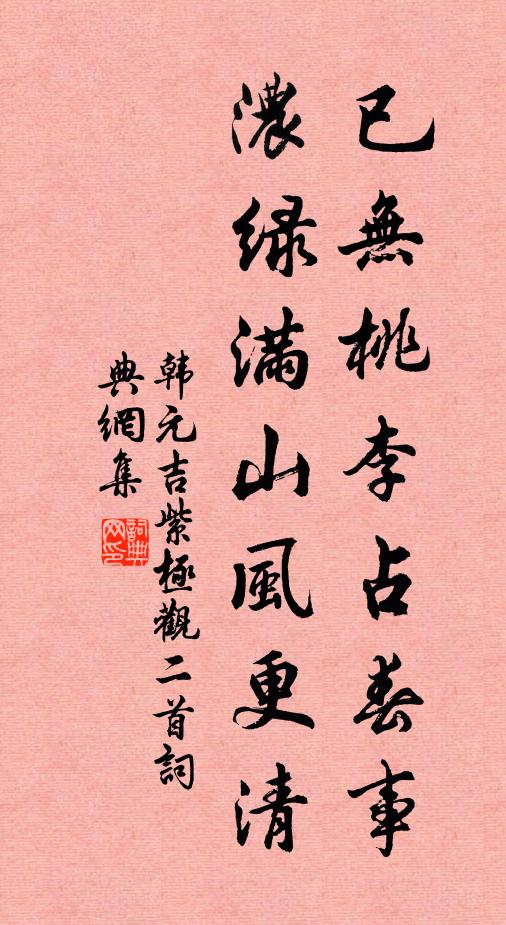 已無桃李占春事
濃緑滿山風更清
韩元吉紫極觀二首詞
典網集
詞典
网印